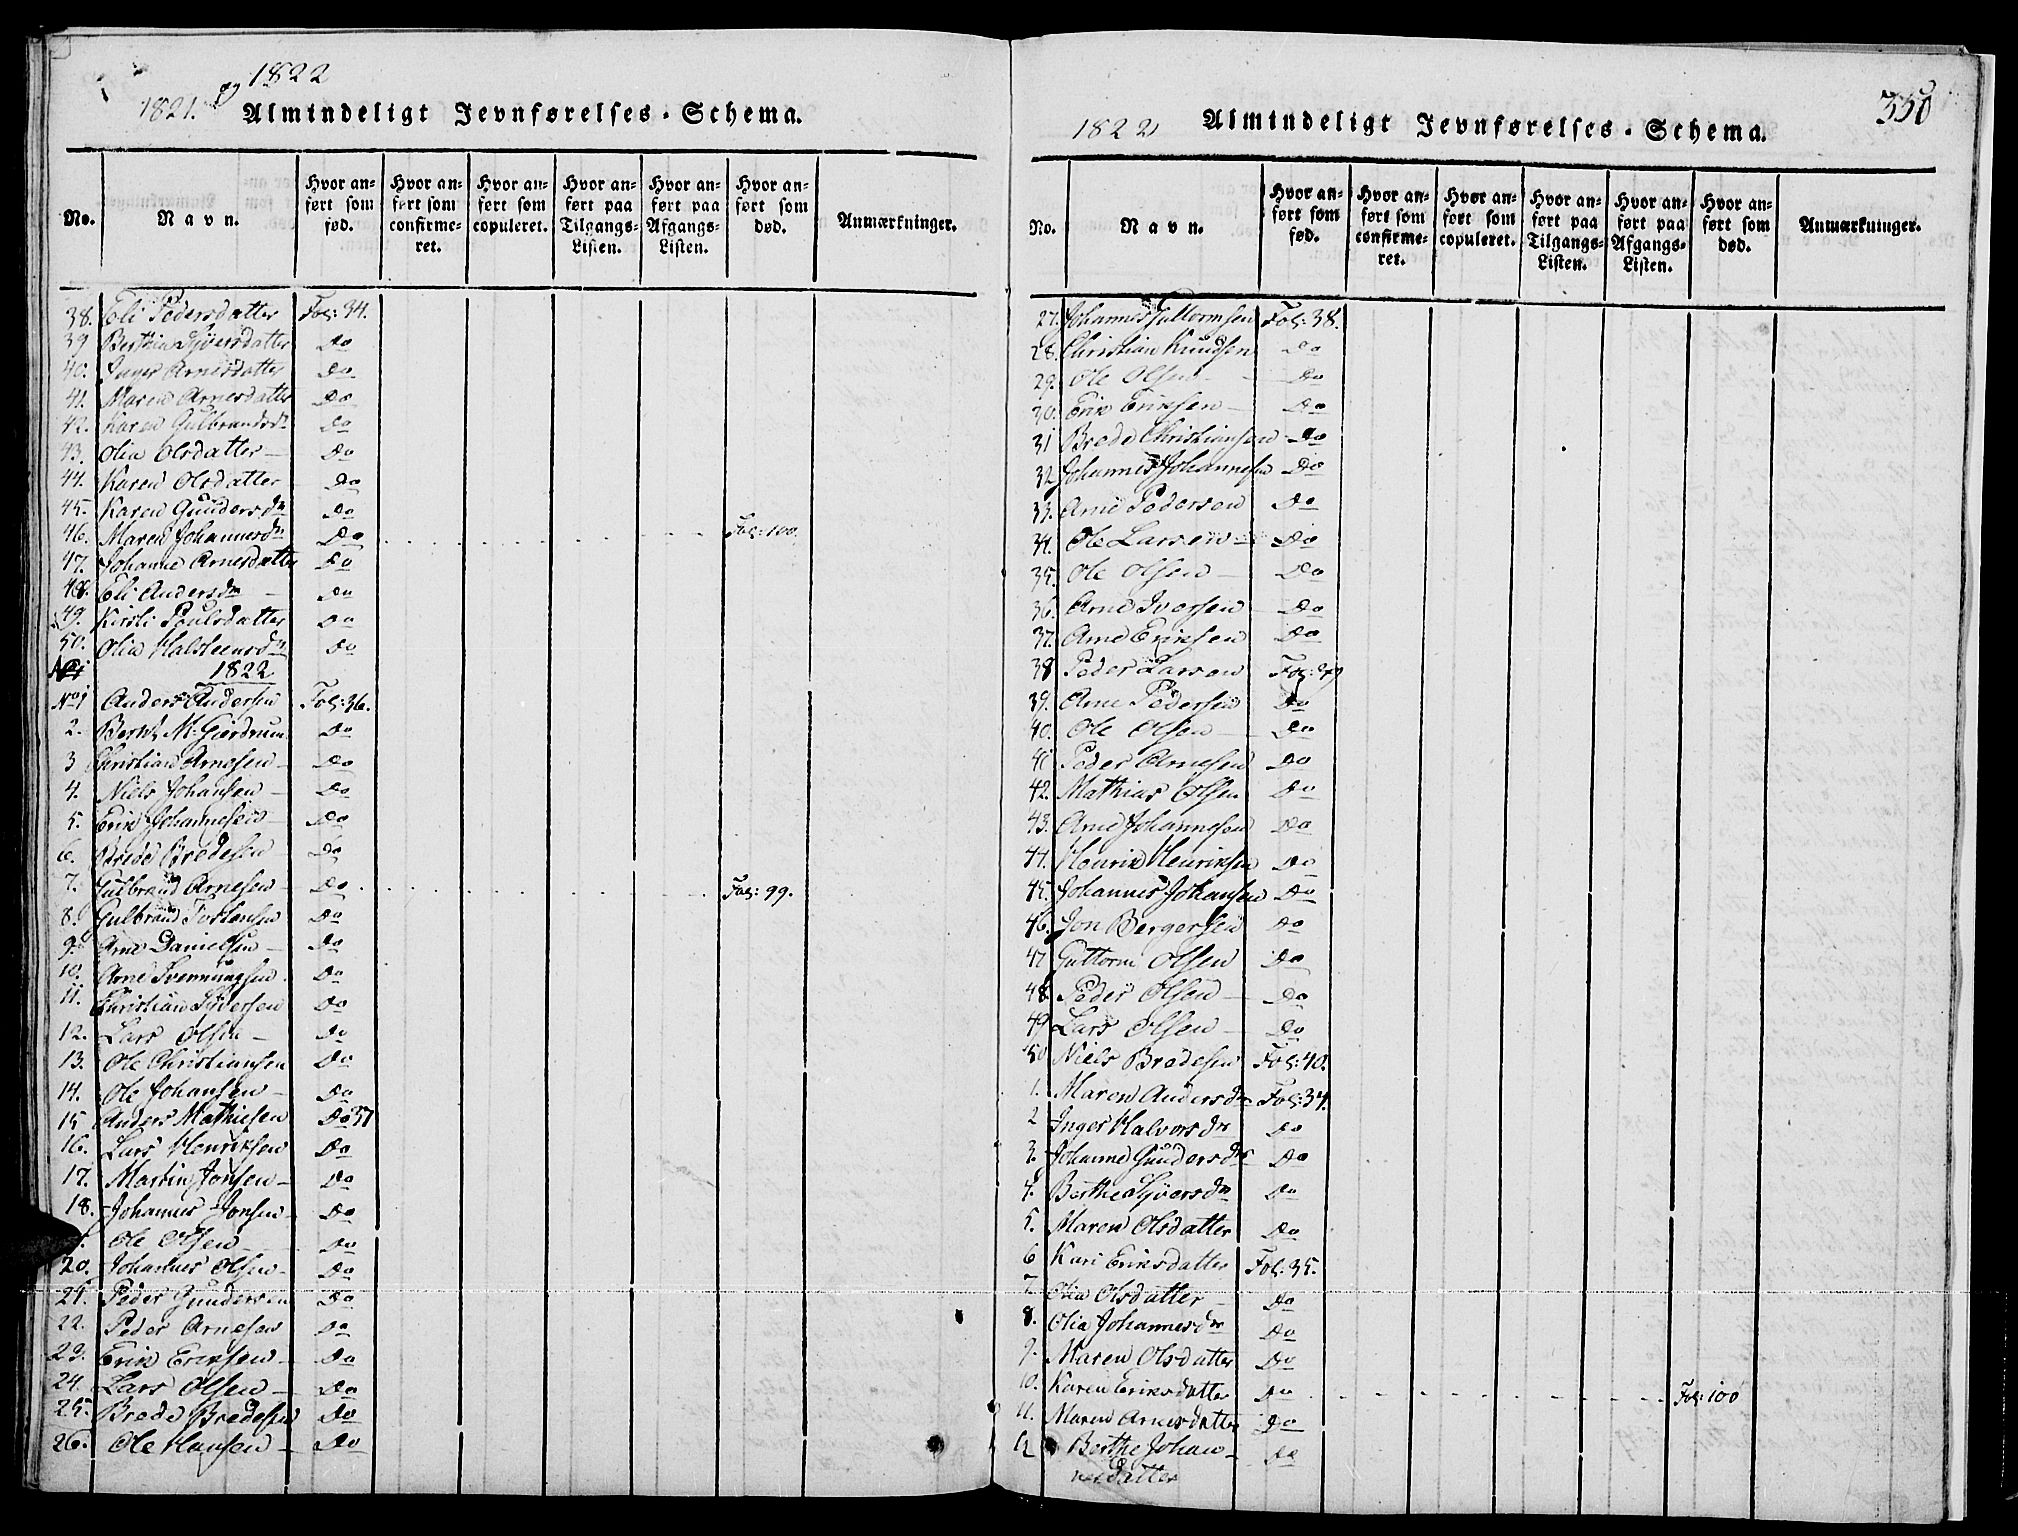 1821. og 1822
Almindeligt Jevnførelses-Schema.
No.
Navn.
Hvor anført som fød.
Hvor anført som confirmeret.
Hvor anført som copuleret.
Hvor anført paa Tilgangs-Listen.
Hvor anført paa Afgangs-Listen.
Hvor anført som død.
Anmærkninger.
38. Eli Pedersdatter Fol: 34.
39 Berthia Syversdatter Do
40. Inger Arnesdatter Do
41. Maren Arnesdatter Do
42. Karen Gulbrandsdr Do
43. Olia Olsdatter Do
44. Karen Olsdatter Do
45. Karen Gundersdr Do
46. Maren Johannesdr Do Fol: 100.
47. Johanne Arnesdatter Do
48. Eli Andersdr Do
49. Kirsti Poulsdatter Do
50. Olia Halsteensdr Do
1822
No 1 Anders Andersen Fol: 36.
2. M. Gierdrum Do
3 Christian Arnesen Do
4. Niels Johansen Do
5. Erik Johannesen Do
6. Brede Bredesen Do
7. Gulbrand Arnesen Do Fol: 99.
8. Gulbrand Torstensen Do
9. Arne Danielsen Do
10. Arne Svenningsen Do
11. Christian Syversen Do
12. Lars Olsen Do
13. Ole Christiansen Do
14. Ole Johansen Do
15 Anders Mathiesen Do 37
16. Lars Henriksen Do
17. Martin Jonsen Do
18. Johannes Jonsen Do
Ole Olsen Do
20. Johannes Olsen Do
21. Peder Gundersen Do
22. Peder Arnesen Do
23. Erik Eriksen Do
24. Lars Olsen Do
25. Brede Bredesen Do
26. Ole Hansen Do
1822
Almindeligt Jevnførelses-Schema.
350
No.
Navn.
Hvor anført som fød.
Hvor anført som confirmeret.
Hvor anført som copuleret.
Hvor anført paa Tilgangs-Listen.
Hvor anført paa Afgangs-Listen.
Hvor anført som død.
Anmærkninger.
27. Johannes Guttormsen Fol: 38.
28. Christian Knudsen Do
29. Ole Olsen Do
30. Erik Eriksen Do
31 Brede Christiansen Do
32 Johannes Johannesen Do
33. Arne Pedersen Do
34. Ole Larsen Do
35. Ole Olsen Do
36. Arne Iversen Do
37. Arne Eriksen Do
38 Peder Larsen Fol: 39
39. Arne Pedersen Do
40. Ole Olsen Do
41 Peder Arnesen Do
42. Mathias Olsen Do
43. Arne Johannesen Do
44. Henrik Henriksen Do
45. Johannes Johansen Do
46. Jon Bergersen Do
47 Guttorm Olsen Do
48 Peder Olsen Do
49 Lars Olsen Do
50 Niels Bredesen Fol: 40.
1. Maren Andersdr Fol: 34.
2 Inger Halvorsdr Do
3. Johanne Gundersdr Do
4. Berthe Syversdr Do
5. Maren Olsdatter Do
6 Kari Eriksdatter Fol: 35.
7. Olia Olsdatter Do
8. Olia Johannesdr Do
9. Maren Olsdatter Do
10. Karen Eriksdatter Do Fol: 100
11. Maren Arnesdatter Do
12 Berthe Johan- Do
nesdatter